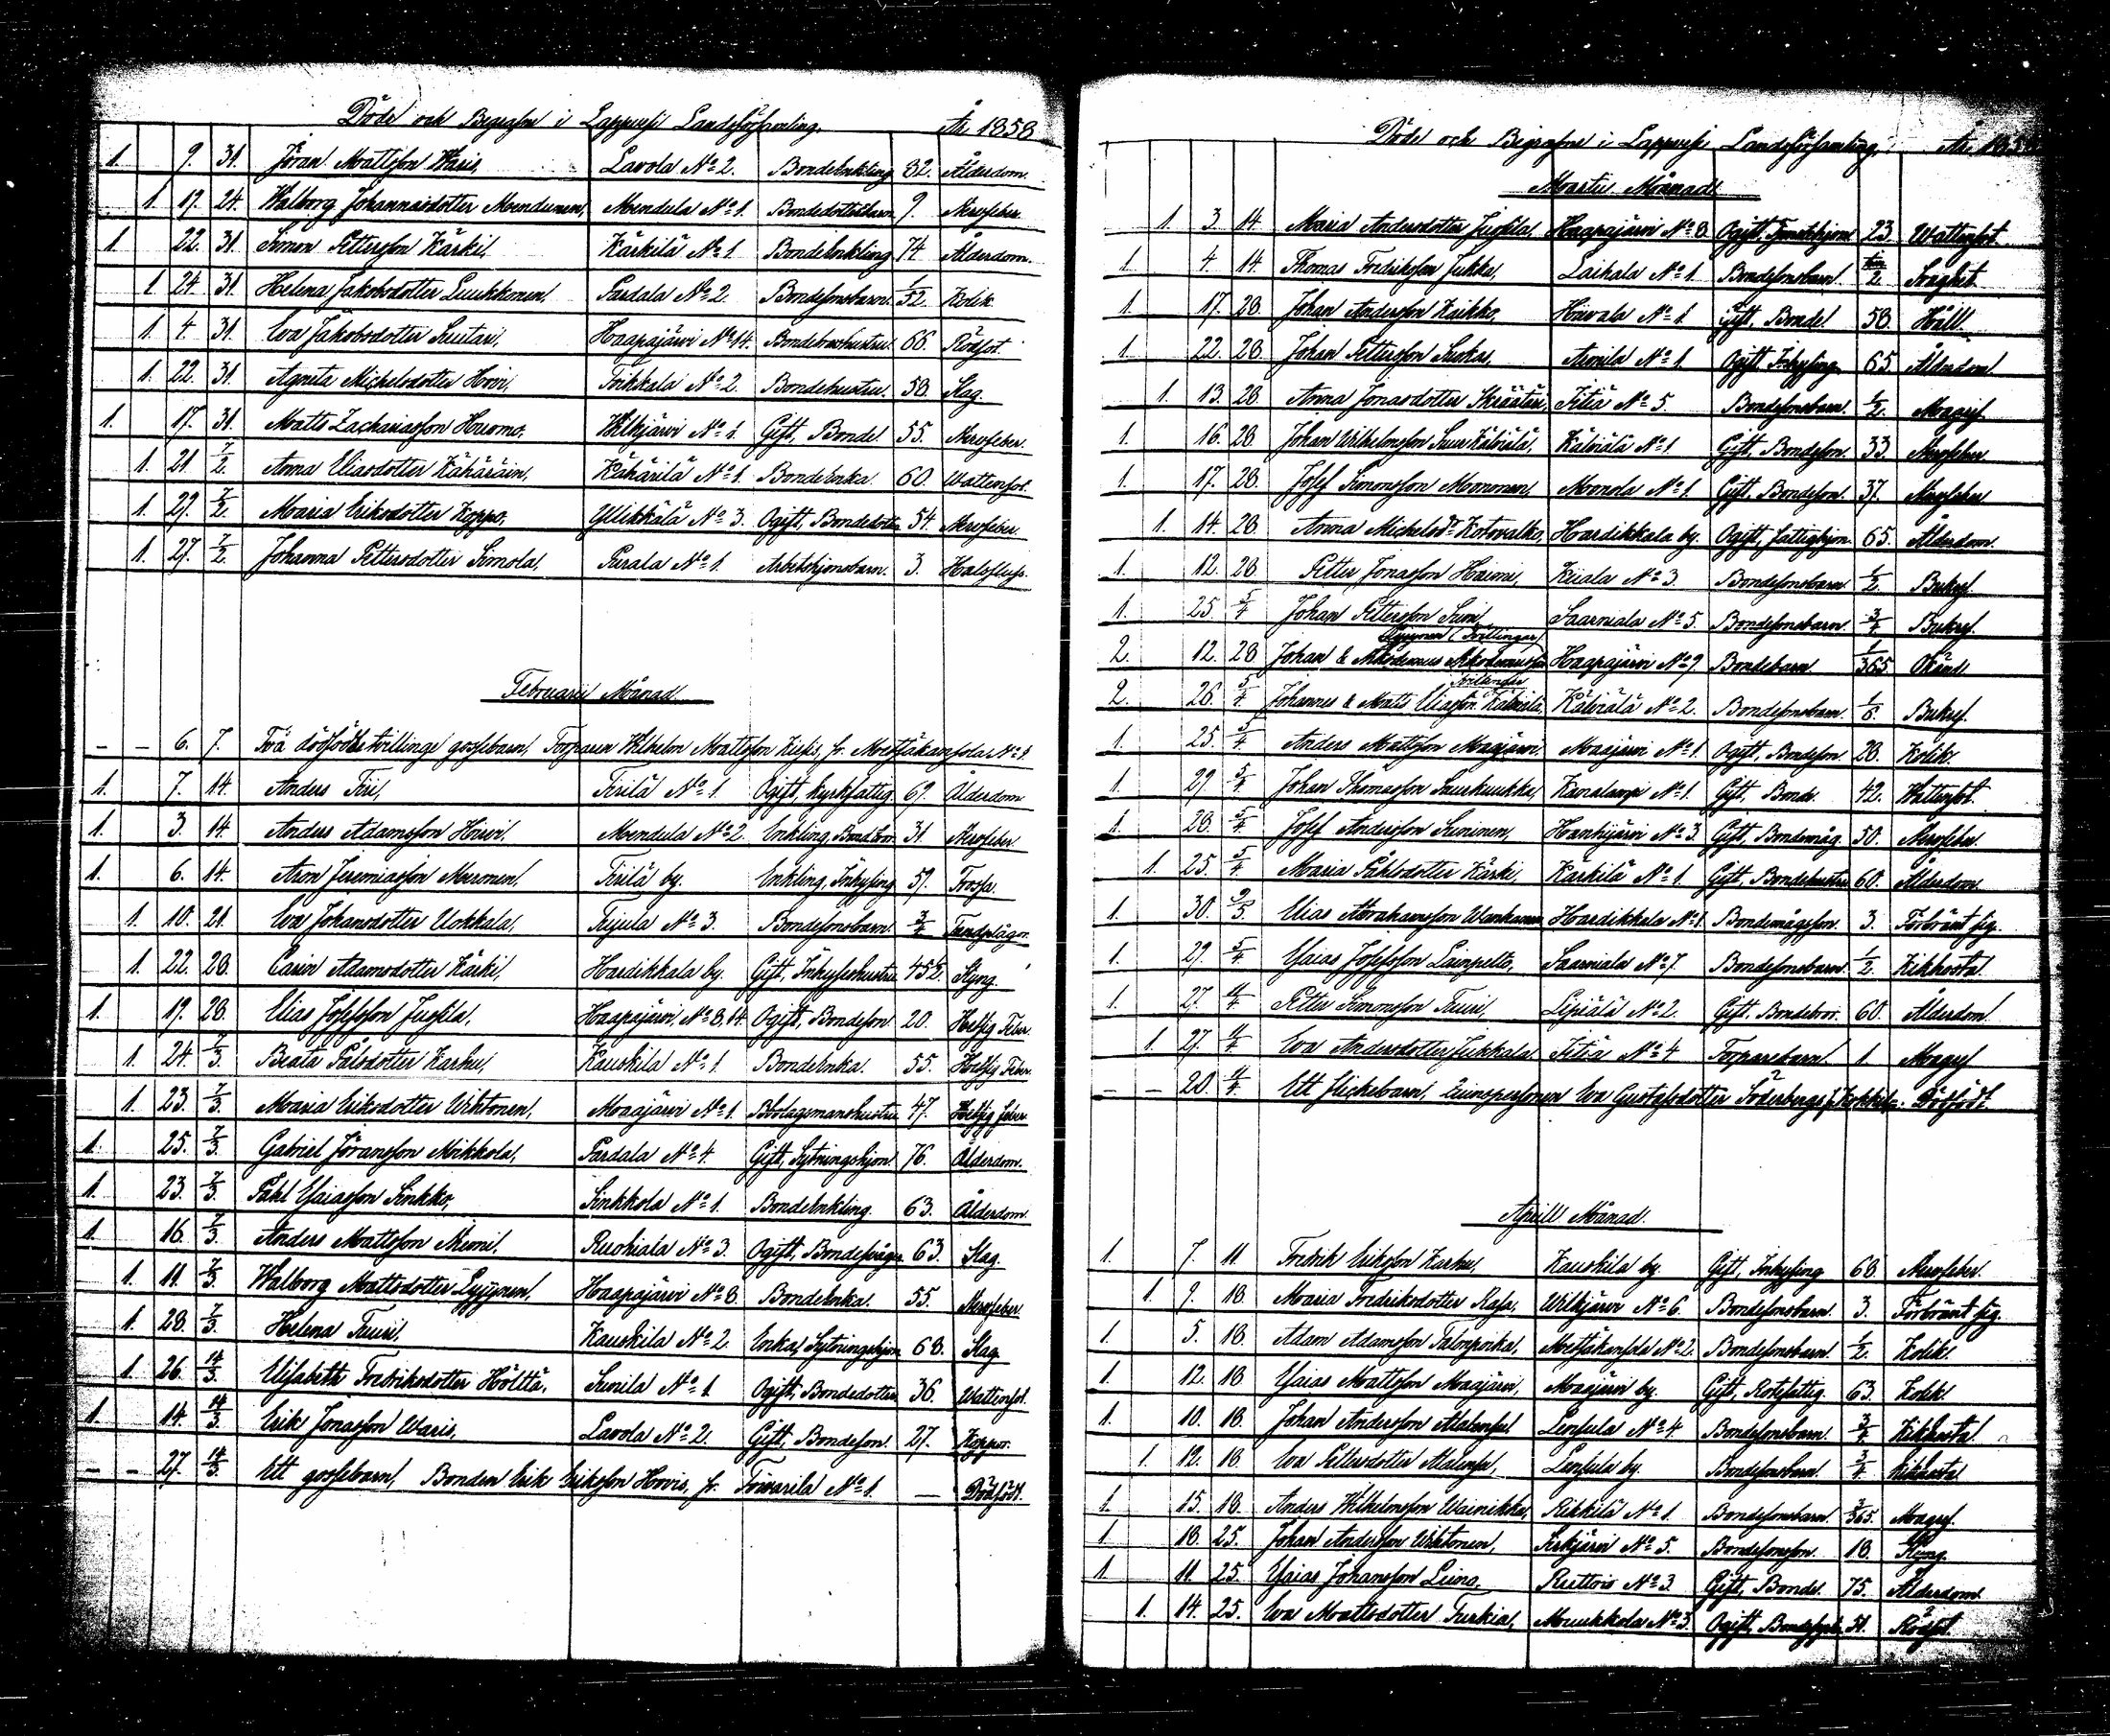 Döde och Begrafne i Lappvesi Landsförsamling. År 1858
1. 9. 31. Jöran Mattsson Waris, Lavola No 2. Bondeenkling 82. Ålderdom.
1. 17. 24. Walborg Johannisdotter Mendunen, Mendula No 1. Bondedotterbarn 9. Nervfeber.
1. 22. 31. Simon Pettersson Kärki, Kärkilä No 1. Bondeenkling 74 Ålderdom.
1. 24. 31. Helena Jakobsdotter Luukkonen, Pardala No 2. Bondesonsbarn 1/52. Kolik
1. 4. 31. Eva Jakobsdotter Suutari, Haapajärvi No 14. Bondehustru 66. Rödsot.
1. 22. 31. Agneta Michelsdotter Hovi, Toikkala No 2. Bondehustru 58. Slag.
1. 17. 31. Matts Zachariasson Huomo, Wilkjärvi No 1. Gift, Bonde 55. Nervfeber.
1. 21. 7/2. Anna Eliasdotter Kähäräin, Kähärilä No 1. Bondeenka. 60. Wattensot.
1. 29. 7/2. Maria Eriksdotter Koppo, Yllikkälä No 3. Ogift, Bondedotter 54. Nervfeber.
1. 27. 7/2. Johanna Pettersdotter Simola, Parala No 1. Arbetshjonsbarn. 3. Halsfluss.
Februarii Månad
– – 6. 7. Två dödfödde tvillinge gossebarn, Torparen Wilhelm Mattsson Kiesis, fr. Metsäkansola No 1.
1. 7. 14. Anders Tiri, Tirilä No 1. Ogift, kyrkfattig 69. Ålderdom
1. 3. 14. Anders Adamsson Hirvi, Mendula No 2. Enkling, Bondebror 31. Nervfeber
1. 6. 14. Aron Jeremiasson Muronen, Tirilä by. Enkling, Inhysing 59. Frossa.
1. 10. 21. Eva Johansdotter Uskkala, No 3. Bondesonsbarn 3/4 Tandplågor.
1. 22. 28. Carin Adamsdotter Kärki, Hardikkala by. Gift, Inhyseshustru 45 1/2. Styng.
1. 19. 28. Elias Josefsson Jussila, Haapajärvi No 8, 14. Ogift, Bondeson 20. Hetsig Feber
1. 24. 7/3. Beata Pålsdotter Karhu, Kauskila No 1 Bondeenka. 55. Hetsig Feber.
1. 23. 7/3. Maria Eriksdotter Wirtonen, Maajärvi No 1. Bolagsmanshustru 47. Hetsig feber
1. 25. 7/3. Gabriel Jöransson Mikkola, Pardala No 4. Gift, Sytningshjon 76. Ålderdom.
1. 23. 7/3. Påhl Esaiasson Sinkko, Sinkkola No 1. Bondeenkling. 63. Ålderdom.
1. 16. 7/3. Anders Mattsson Niemi, Ruohiala No 3. Ogift, Bondesvåger 63. Slag.
1. 11. 7/3. Walborg Mattsdotter Lyyjynen, Haapajärvi No 8. Bondeenka. 55. Nervfeber
1. 28. 7/3. Helena Tuuri, Kauskila No 2. Enka, Sytningshjon 68. Slag
1. 26. 14/3. Elisabeth Fredriksdotter Hölttä, Sunila No 1. Ogift, Bondedotter 36. Wattensot.
1. 14. 14/3. Erik Jonasson Waris, Lavola No 2. Gift, Bondeson. 27. Koppor.
– – 27. 14/3. Ett gossebarn, Bonden Erik Eriksson Hovis, fr. Toivarila No 1. — Dödfödt.
Döde och Begrafne i Lappvesi Landsförsamling, År 1858
Martii Månad
1. 3. 14. Maria Andersdotter Jussila, Haapajärvi No 8. Ogift, Tjenstehjon 23 Wattensot
1. 4. 14. Thomas Fredriksson Jukka, Laihala No 1. Bondesonsbarn. 2. Svaghet
1. 17. 28. Johan Andersson Kaikko, Hävala No 1. Gift, Bonde. 58. Håll.
1. 22. 28. Johan Pettersson Suikas, No 1. Ogift, Inhysing 65. Ålderdom
1. 13. 28. Anna Jonasdotter Skräätäri, Titiä No 5. Bondesonsbarn. 1/2. Magref
1. 16. 28. Johan Wilhelmsson Suur Kälviälä, Kälviälä No 1. Gift, Bondeson. 33. Nervfeber
1. 17. 28. Josef Simonsson Mononen, Monola No 1. Gift, Bondeson. 37. Nervfeber
1. 14. 28. Anna Michelsdr Kotovalko, Hardikkala by. Ogift, fattighjon 65. Ålderdom.
1. 12. 28 Petter Jonasson Haimi, Kiiala No 3. Bondesonsbarn 1/2. Bukref.
1. 25. 5/4 Johan Pettersson Suni, Saarniala No 5. Bondesonsbarn. 3/4. Bukref.
2. 12. 28 Johan & Nikodemus Nikodemusson (Tvillingar) Haapajärvi No 9 Bondebarn 1/365. Okänd.
2. 26. 5/4. Johannes & Matts Eliasson Kälviälä, Tvillingar Kälviälä No 2. Bondesonsbarn. 1/6. Bukref.
1. 25. 5/4. Anders Mattsson Maajärvi Maajärvi No 1. Ogift, Bondeson. 28. Kolik.
1. 29. 5/4 Johan Thomasson Suurkuukka, No 1. Gift, Bonde. 42. Wattensot.
1. 28. 5/4 Josef Andersson Suninen, Hanhijärvi No 3. Gift, Bondemåg. 50. Nervfeber.
1. 25. 5/4. Maria Påhlsdotter Kärki, Kärkilä No 1. Gift, Bondehustru 60. Ålderdom.
1. 30. 2/5. Elias Abrahamsson Wanhanen Hardikkala No 1. Bondemågsson. 3. Förbränt sig.
1. 29. 5/4. Esaias Josefsson Lumpetti, Saarniala No 7. Bondesonsbarn 1/2. Kikhosta.
1. 27. 11/4. Petter Simonsson Tuuri, No 2. Gift, Bondebror. 60. Ålderdom.
1. 27. 11/4. Eva Andersdotter Jukkala Titiä No 4 Torparebarn. 1. Magref
– – 20. 11/4. Ett flickebarn, qvinspersonen Eva Gustafsdotter Söderbergs, Dödfödt
Aprill Månad.
1. 7. 11. Fredrik Eriksson Karhu, Kauskila by. Gift, Inhysing 68. Nervfeber.
1. 9. 18. Maria Fredriksdotter Rasa, Wilkjärvi No 6. Bondesonsbarn. 3. Förbränt sig.
1. 5. 18. Adam Adamsson Talonpoika, Metsäkansola No 2. Bondesonsbarn. 1/2. Kolik.
1. 12. 18 Esaias Mattsson Maajärvi, Maajärvi by. Gift, Rotefattig. 63. Kolik
1. 10. 18. Johan Andersson Alalensu, Lensula No 4 Bondesonsbarn. 3/4. Kikhosta.
1. 12. 18. Eva Pettersdotter Alalensu, Lensula by. Bondesonsbarn. 3/4 Kikhosta
1. 15. 18. Anders Wilhelmsson Wainikka, Rikkilä No 1. Bondesonsbarn 3/365. Magref.
1. 18. 25. Johan Andersson Wirtonen, No 5. Bondesonson. 18. Styng.
1. 11. 25. Esaias Johansson Leino, Ruttois No 3. Gift, Bonde. 75. Ålderdom.
1. 14. 25. Eva Mattsdotter Turkia, Muukkola No 3. Ogift, 51. Rödsot.